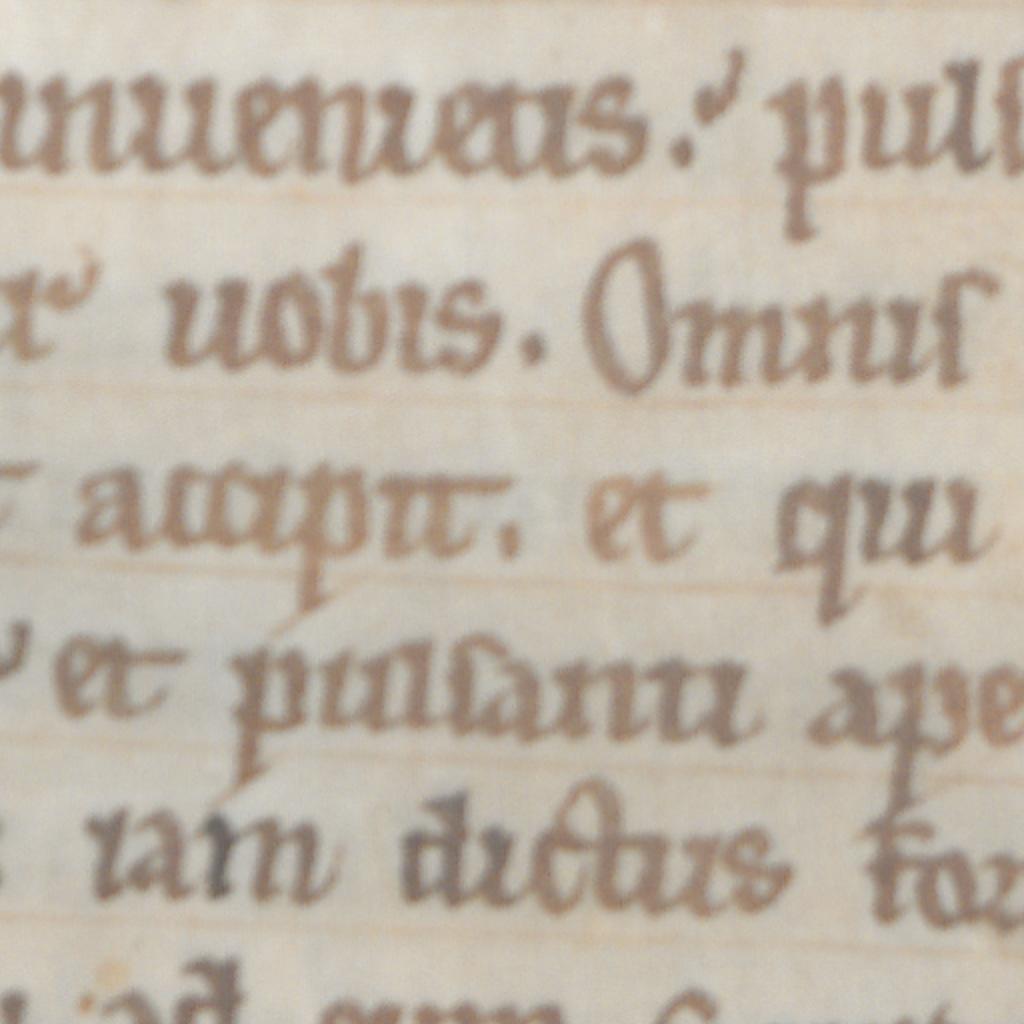 inuenietis. pulſ
uobis. Omnis
accipit. et qui
et pulsanti ape
iam dictus for
ad